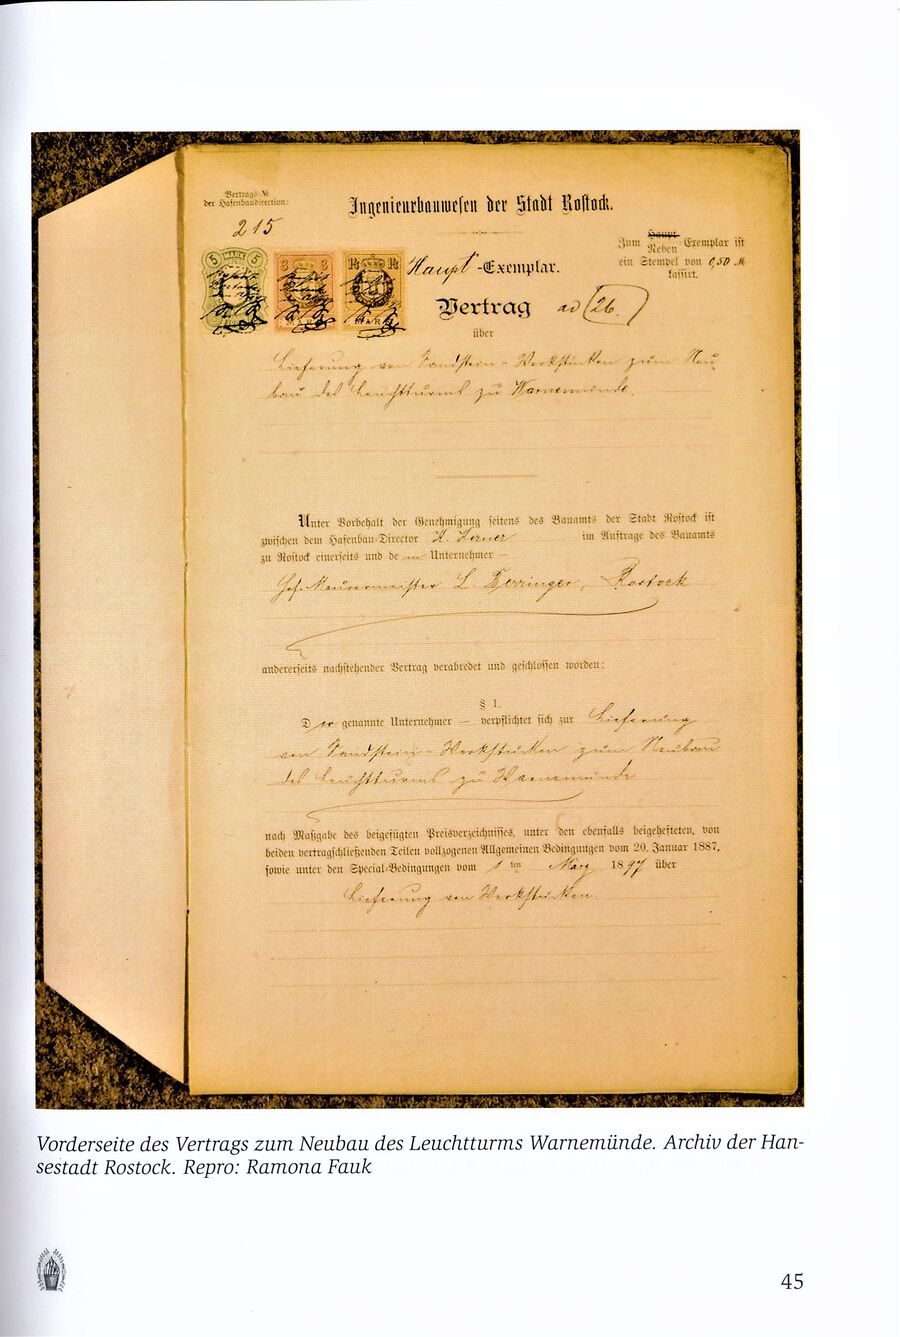 Vertrags №
der Hafenbaudirection:
215
Ingenieurbauwesen der Stadt Rostock.
Zum Haupt Neben-Exemplar ist
ein Stempel von 0,50 M
kassirt.
5 MARK 5
3 3
MARK
1½ 1½
MARK
Haupt-Exemplar.
Vertrag ad 26.
über
Lieferung von Sandstein-Werkstücken zum Neu-
bau des Leuchtturms zu Warnemünde.
Unter Vorbehalt der Genehmigung seitens des Bauamts der Stadt Rostock ist
zwischen dem Hafenbau-Director K. Kerner im Auftrage des Bauamts
zu Rostock einerseits und dem Unternehmer —
Hof-Maurermeister L. Berringer, Rostock
andererseits nachstehender Vertrag verabredet und geschlossen worden:
§ 1.
Der genannte Unternehmer — verpflichtet sich zur Lieferung
von Sandstein-Werkstücken zum Neubau
des Leuchtturms zu Warnemünde
nach Maßgabe des beigefügten Preisverzeichnisses, unter den ebenfalls beigehefteten, von
beiden vertragschließenden Teilen vollzogenen Allgemeinen Bedingungen vom 20. Januar 1887,
sowie unter den Special-Bedingungen vom 1ten März 1897 über
Lieferung von Werkstücken
Vorderseite des Vertrags zum Neubau des Leuchtturms Warnemünde. Archiv der Han-
sestadt Rostock. Repro: Ramona Fauk
45